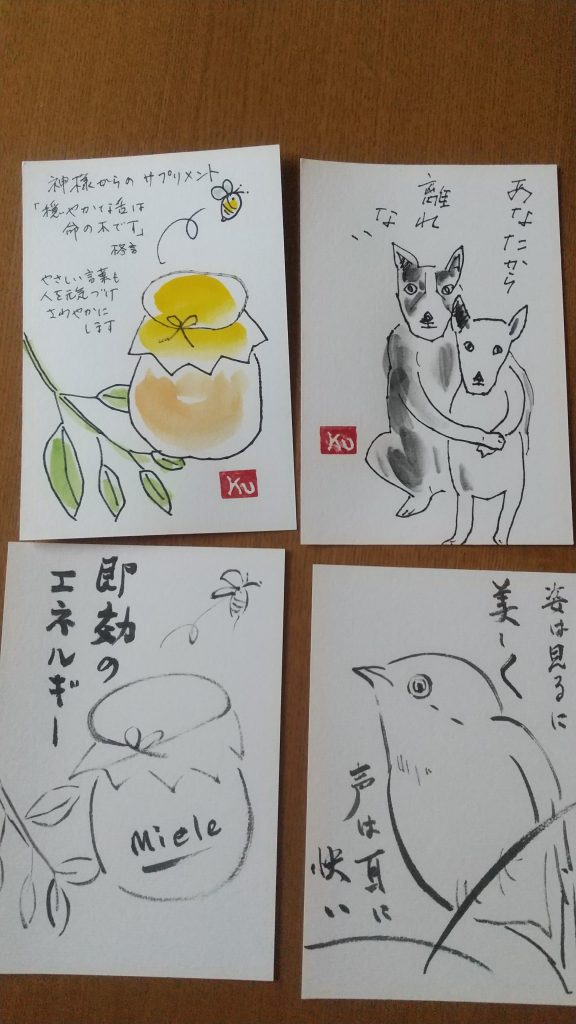 神様からの サプリメント
「穏やかな舌は
命の木です」
格言
やさしい言葉も
人を元気づけ
さわやかに
します
KU
あなたから
離れ
ない
KU
即効の
エネルギー
Miele
姿は見るに
美しく
声は耳に
快い